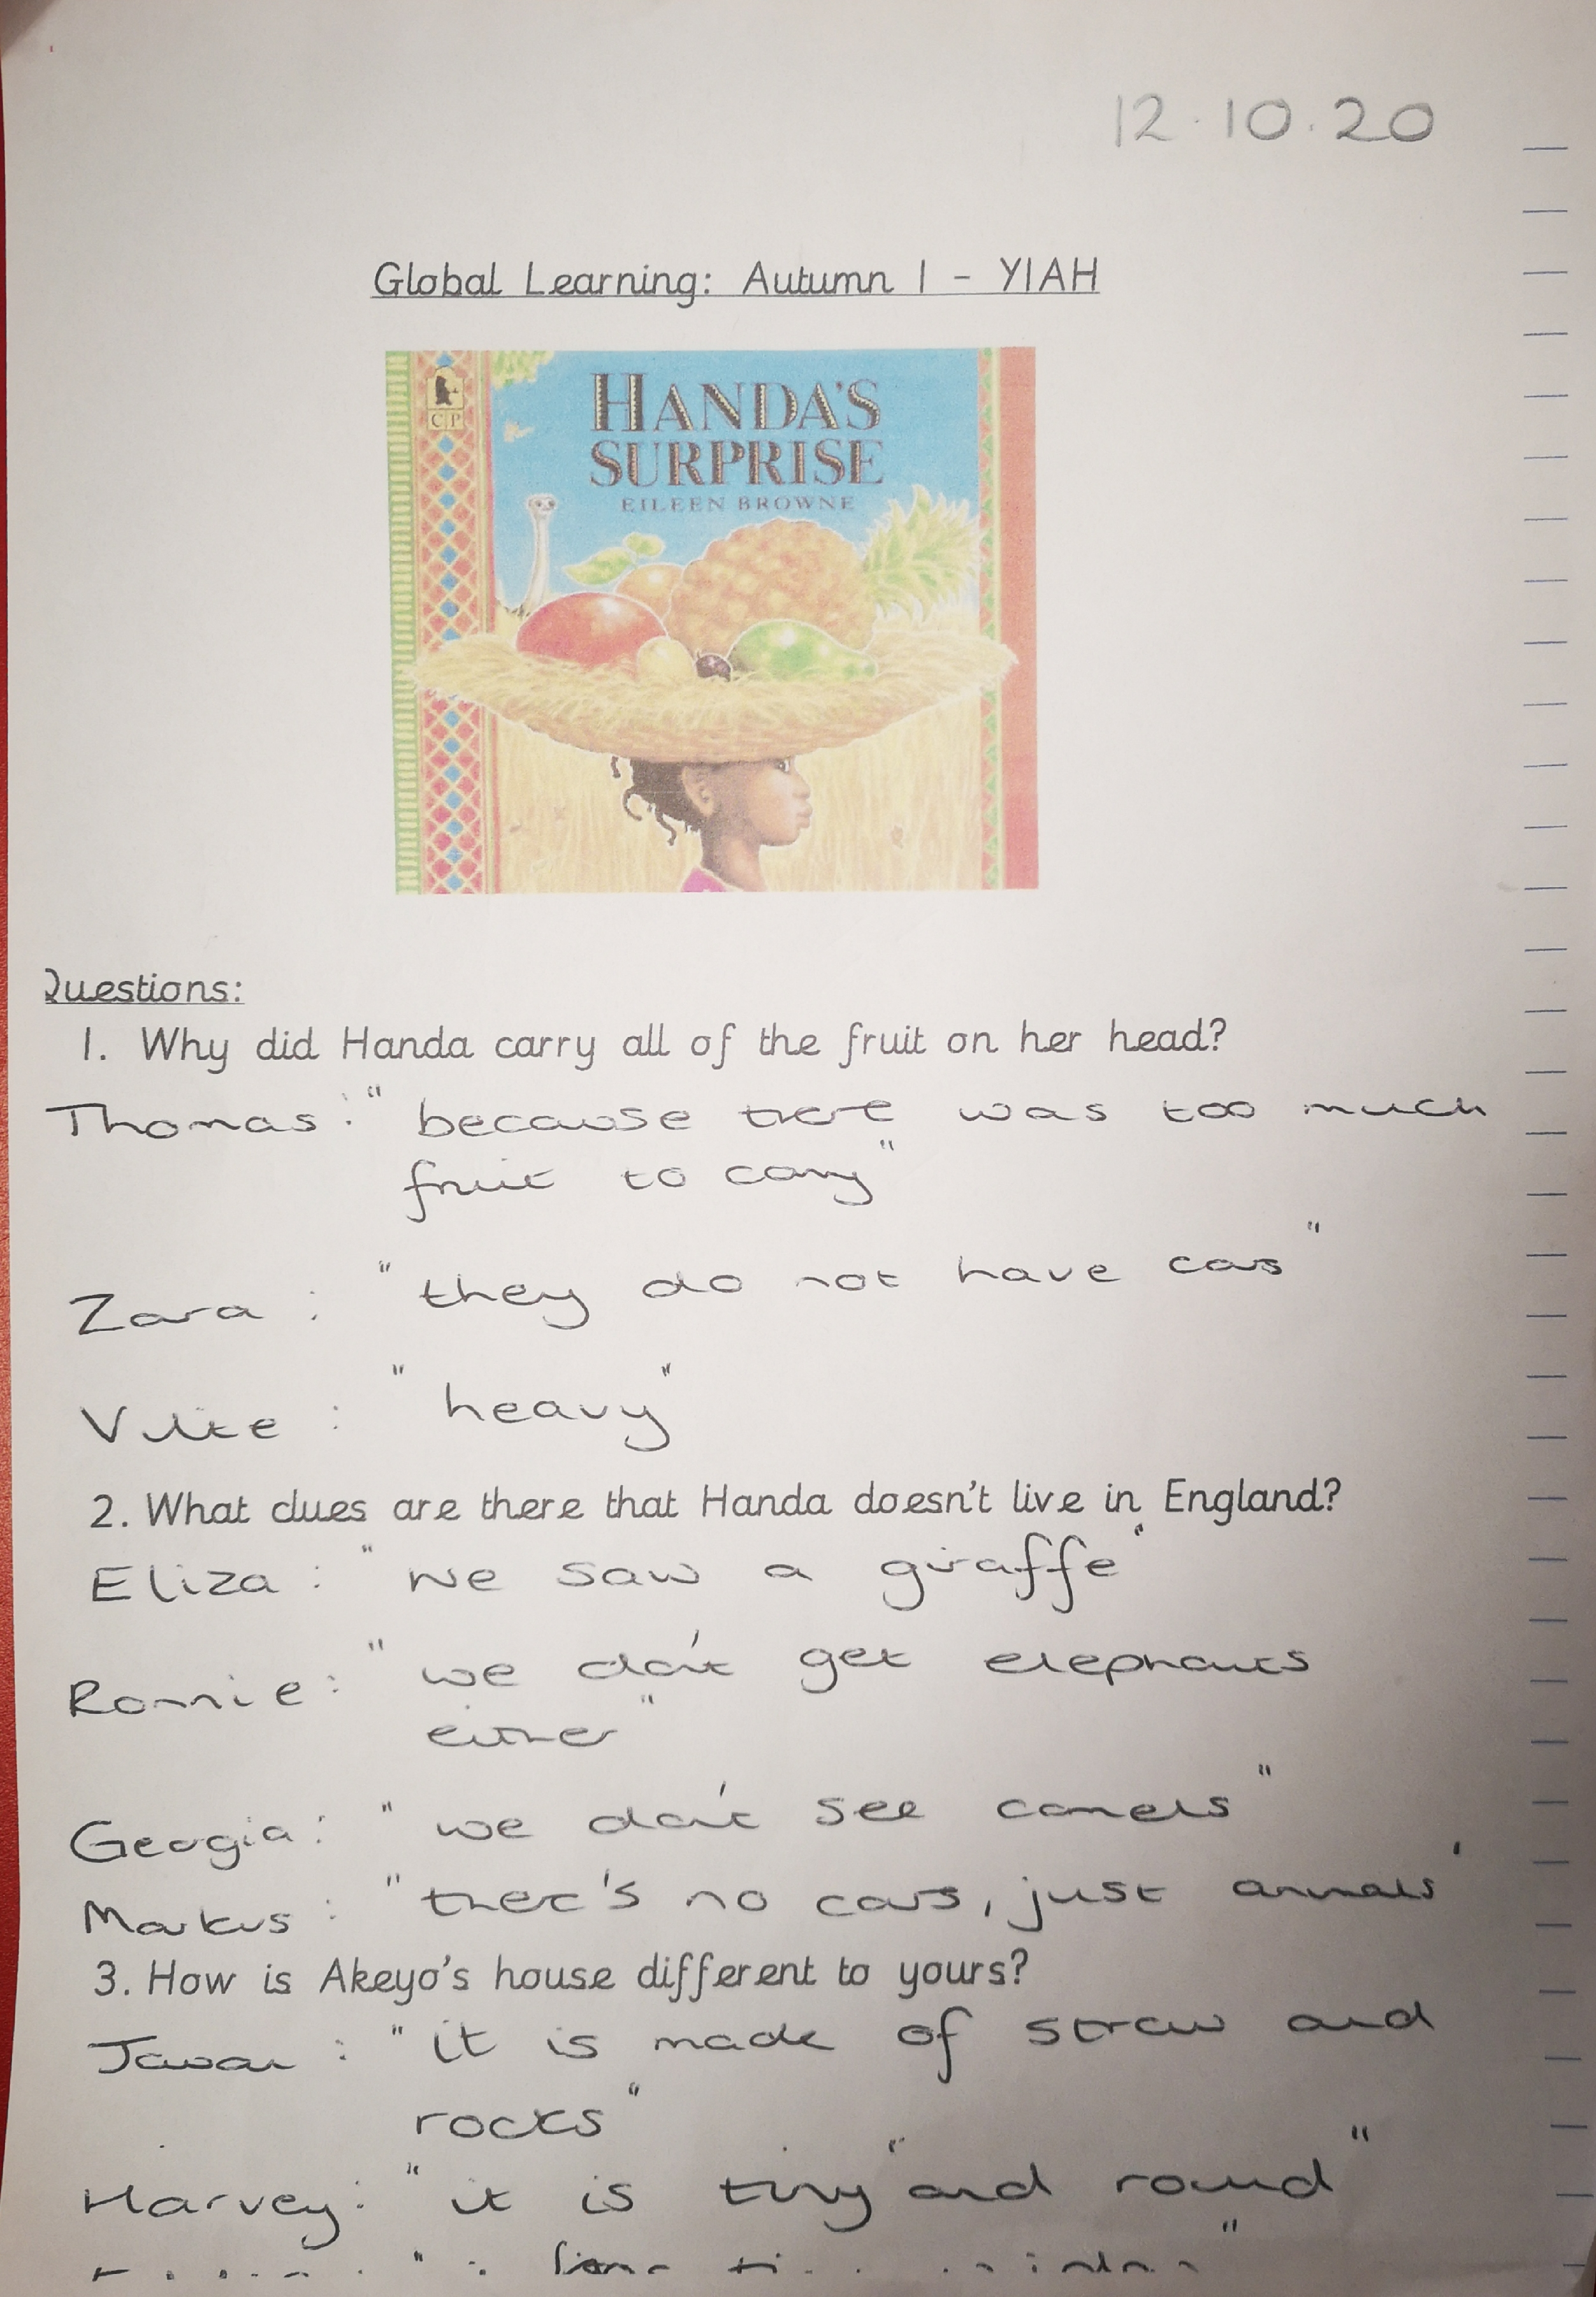 12.10.20
Global Learning: Autumn 1 - Y1AH
CP
HANDA'S
SURPRISE
EILEEN BROWNE
Questions:
1. Why did Handa carry all of the fruit on her head?
Thomas: "because there was too much
fruit to carry"
Zara: "they do not have cars"
"heavy"
2. What clues are there that Handa doesn't live in England?
Eliza: "we saw a giraffe"
Ronnie: "we don't get elephants
either"
Georgia: "we don't see camels"
Markus: "there's no cars, just animals'
3. How is Akeyo's house different to yours?
"it is made of straw and
rocks"
Harvey: "it is tiny" and round"